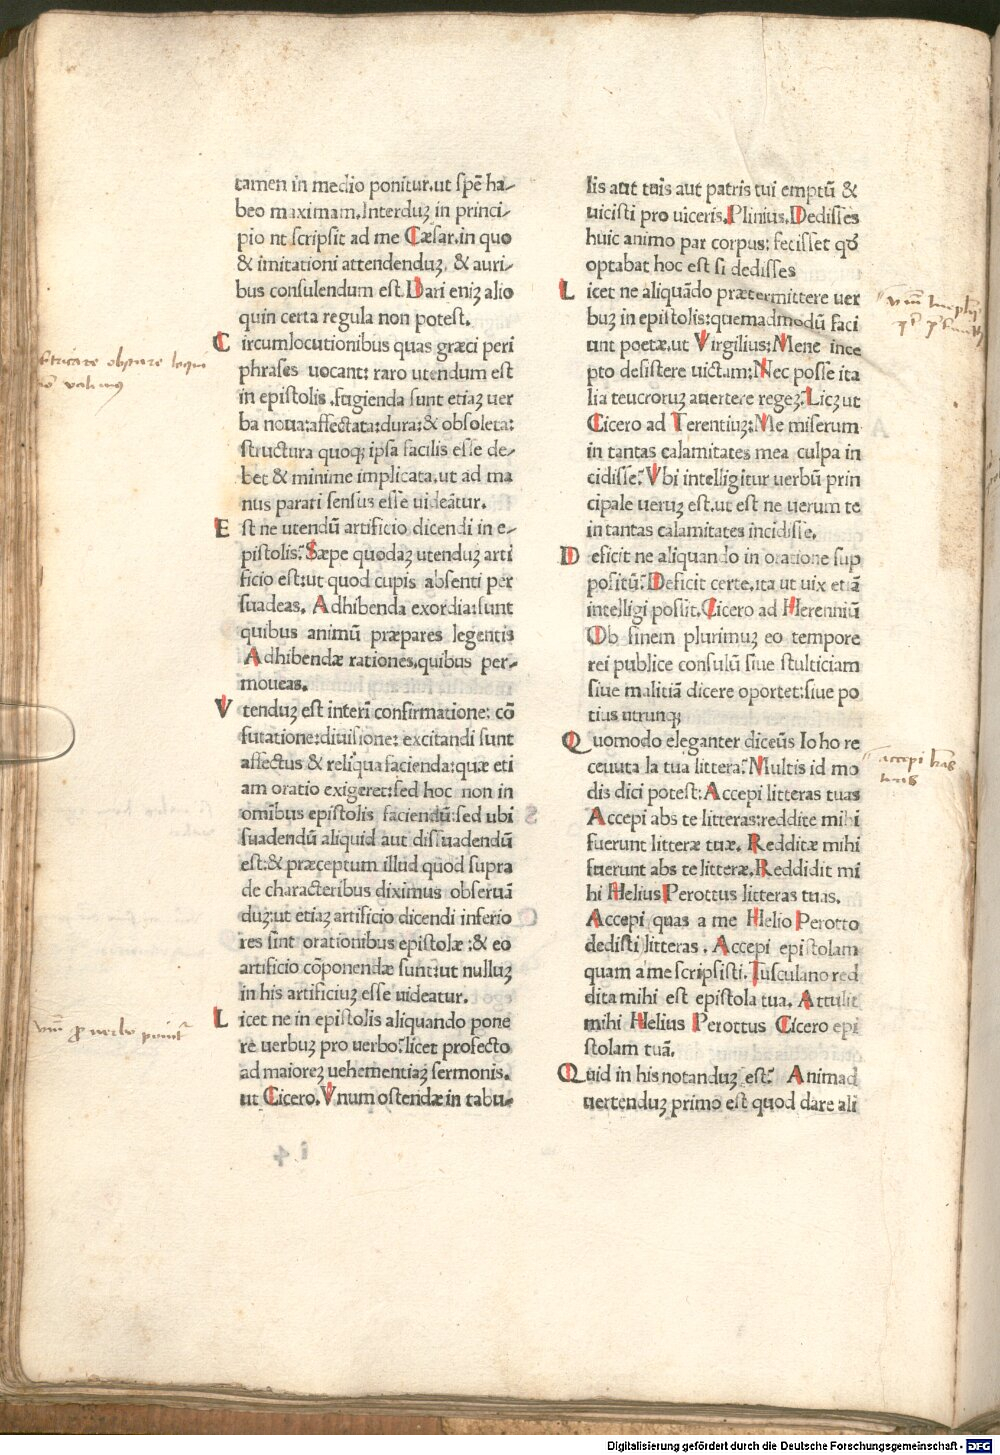 tamen in medio ponitur.ut spē ha-
beo maximam.Interduꝫ in princi-
pio ut scripsit ad me Cæsar.in quo
& imitationi attendenduꝫ, & auri-
bus consulendum est.Dari eniꝫ alio
quin certa regula non potest.
Circumlocutionibus quas græci peri
phrases uocant: raro utendum est
in epistolis .fugienda sunt etiaꝫ uer
ba noua:affectata:dura:& obsoleta:
structura quoqꝫ ipsa facilis esse de-
bet & minime implicata.ut ad ma
nus parati sensus esse uideātur.
Est ne utendū artificio dicendi in e-
pistolis? Sæpe quodaꝫ utenduꝫ arti
ficio est:ut quod cupis absenti per
suadeas. Adhibenda exordia:sunt
quibus animū præpares legentis
Adhibendæ rationes,quibus per-
moueas.
Vtenduꝫ est interī confirmatione: cō
futatione:diuisione: excitandi sunt
affectus & reliqua facienda:quæ eti
am oratio exigeret:sed hoc non in
omībus epistolis faciendū:sed ubi
suadendū aliquid aut dissuadendū
est:& præceptum illud quod supra
de characteribus diximus obseruā
duꝫ:ut etiaꝫ artificio dicendi inferio
res sint orationibus epistolæ :& eo
artificio cōponendæ sunt:ut nulluꝫ
in his artificiuꝫ esse uideatur.
Licet ne in epistolis aliquando pone
re uerbuꝫ pro uerbo?licet profecto
ad maioreꝫ uehementiaꝫ sermonis.
ut Cicero.Vnum ostendæ in tabu-
lis aut tuis aut patris tui emptū &
uicisti pro uiceris.Plinius.Dedisses
huic animo par corpus: fecisset qđ
optabat hoc est si dedisses
Licet ne aliquādo prætermittere uer
buꝫ in epistolis:quemadmodū faci
unt poetæ.ut Virgilius:Mene ince
pto desistere uictam:Nec posse ita
lia teucroruꝫ auertere regeꝫ?Licꝫ ut
Cicero ad Terentiuꝫ:Me miserum
in tantas calamitates mea culpa in
cidisse?Vbi intelligitur uerbū prin
cipale ueruꝫ est.ut est ne uerum te
in tantas calamitates incidisse.
Deficit ne aliquando in oratione sup
positū?Deficit certe.ita ut uix et iā
intelligi possit.Cicero ad Herenniū
Ob sinem plurimuꝫ eo tempore
rei publice consulū siue stulticiam
siue malitiā dicere oportet:siue po
tius utrunqꝫ
Quomodo eleganter diceūs Io ho re
ceuuta la tua littera? Multis id mo
dis dici potest: Accepi litteras tuas
Accepi abs te litteras:reddite mihi
fuerunt litteræ tuæ. Redditæ mihi
fuerunt abs te litteræ.Reddidit mi
hi Helius Perottus litteras tuas.
Accepi quas a me Helio Perotto
dedisti litteras . Accepi epistolam
quam a me scripsisti.Tusculano red
dita mihi est epistola tua. Attulit
mihi Helius Perottus Cicero epi
stolam tuā.
Quid in his notanduꝫ est? Animad
uertenduꝫ primo est quod dare ali
obscure loqui
accepi
Digitalisierung gefördert durch die Deutsche Forschungsgemeinschaft - DFG